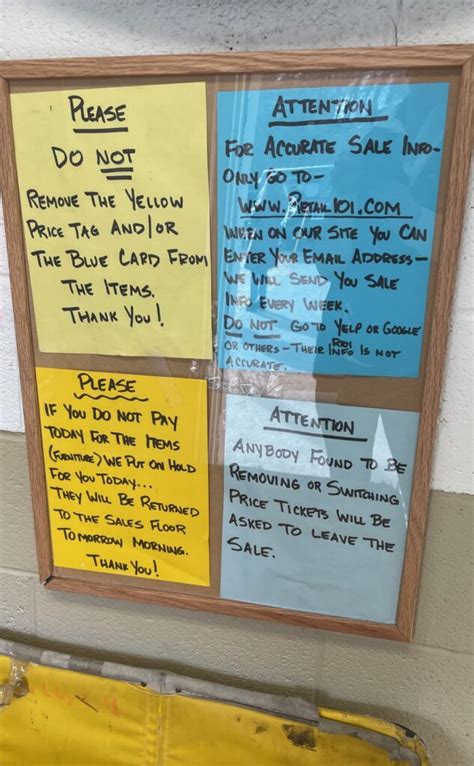 PLEASE
DO NOT
REMOVE THE YELLOW
PRICE TAG AND/OR
THE BLUE CARD FROM
THE ITEMS.
THANK YOU!
ATTENTION
FOR ACCURATE SALE INFO-
ONLY GO TO-
WWW.RETAIL101.COM
WHEN ON OUR SITE YOU CAN
ENTER YOUR EMAIL ADDRESS-
WE WILL SEND YOU SALE
INFO EVERY WEEK.
DO NOT GO TO YELP OR GOOGLE
OR OTHERS - THEIR R101 INFO IS NOT
ACCURATE.
PLEASE
IF YOU DO NOT PAY
TODAY FOR THE ITEMS
(FURNITURE) WE PUT ON HOLD
FOR YOU TODAY...
THEY WILL BE RETURNED
TO THE SALES FLOOR
TOMORROW MORNING.
THANK YOU!
ATTENTION
ANYBODY FOUND TO BE
REMOVING OR SWITCHING
PRICE TICKETS WILL BE
ASKED TO LEAVE THE
SALE.